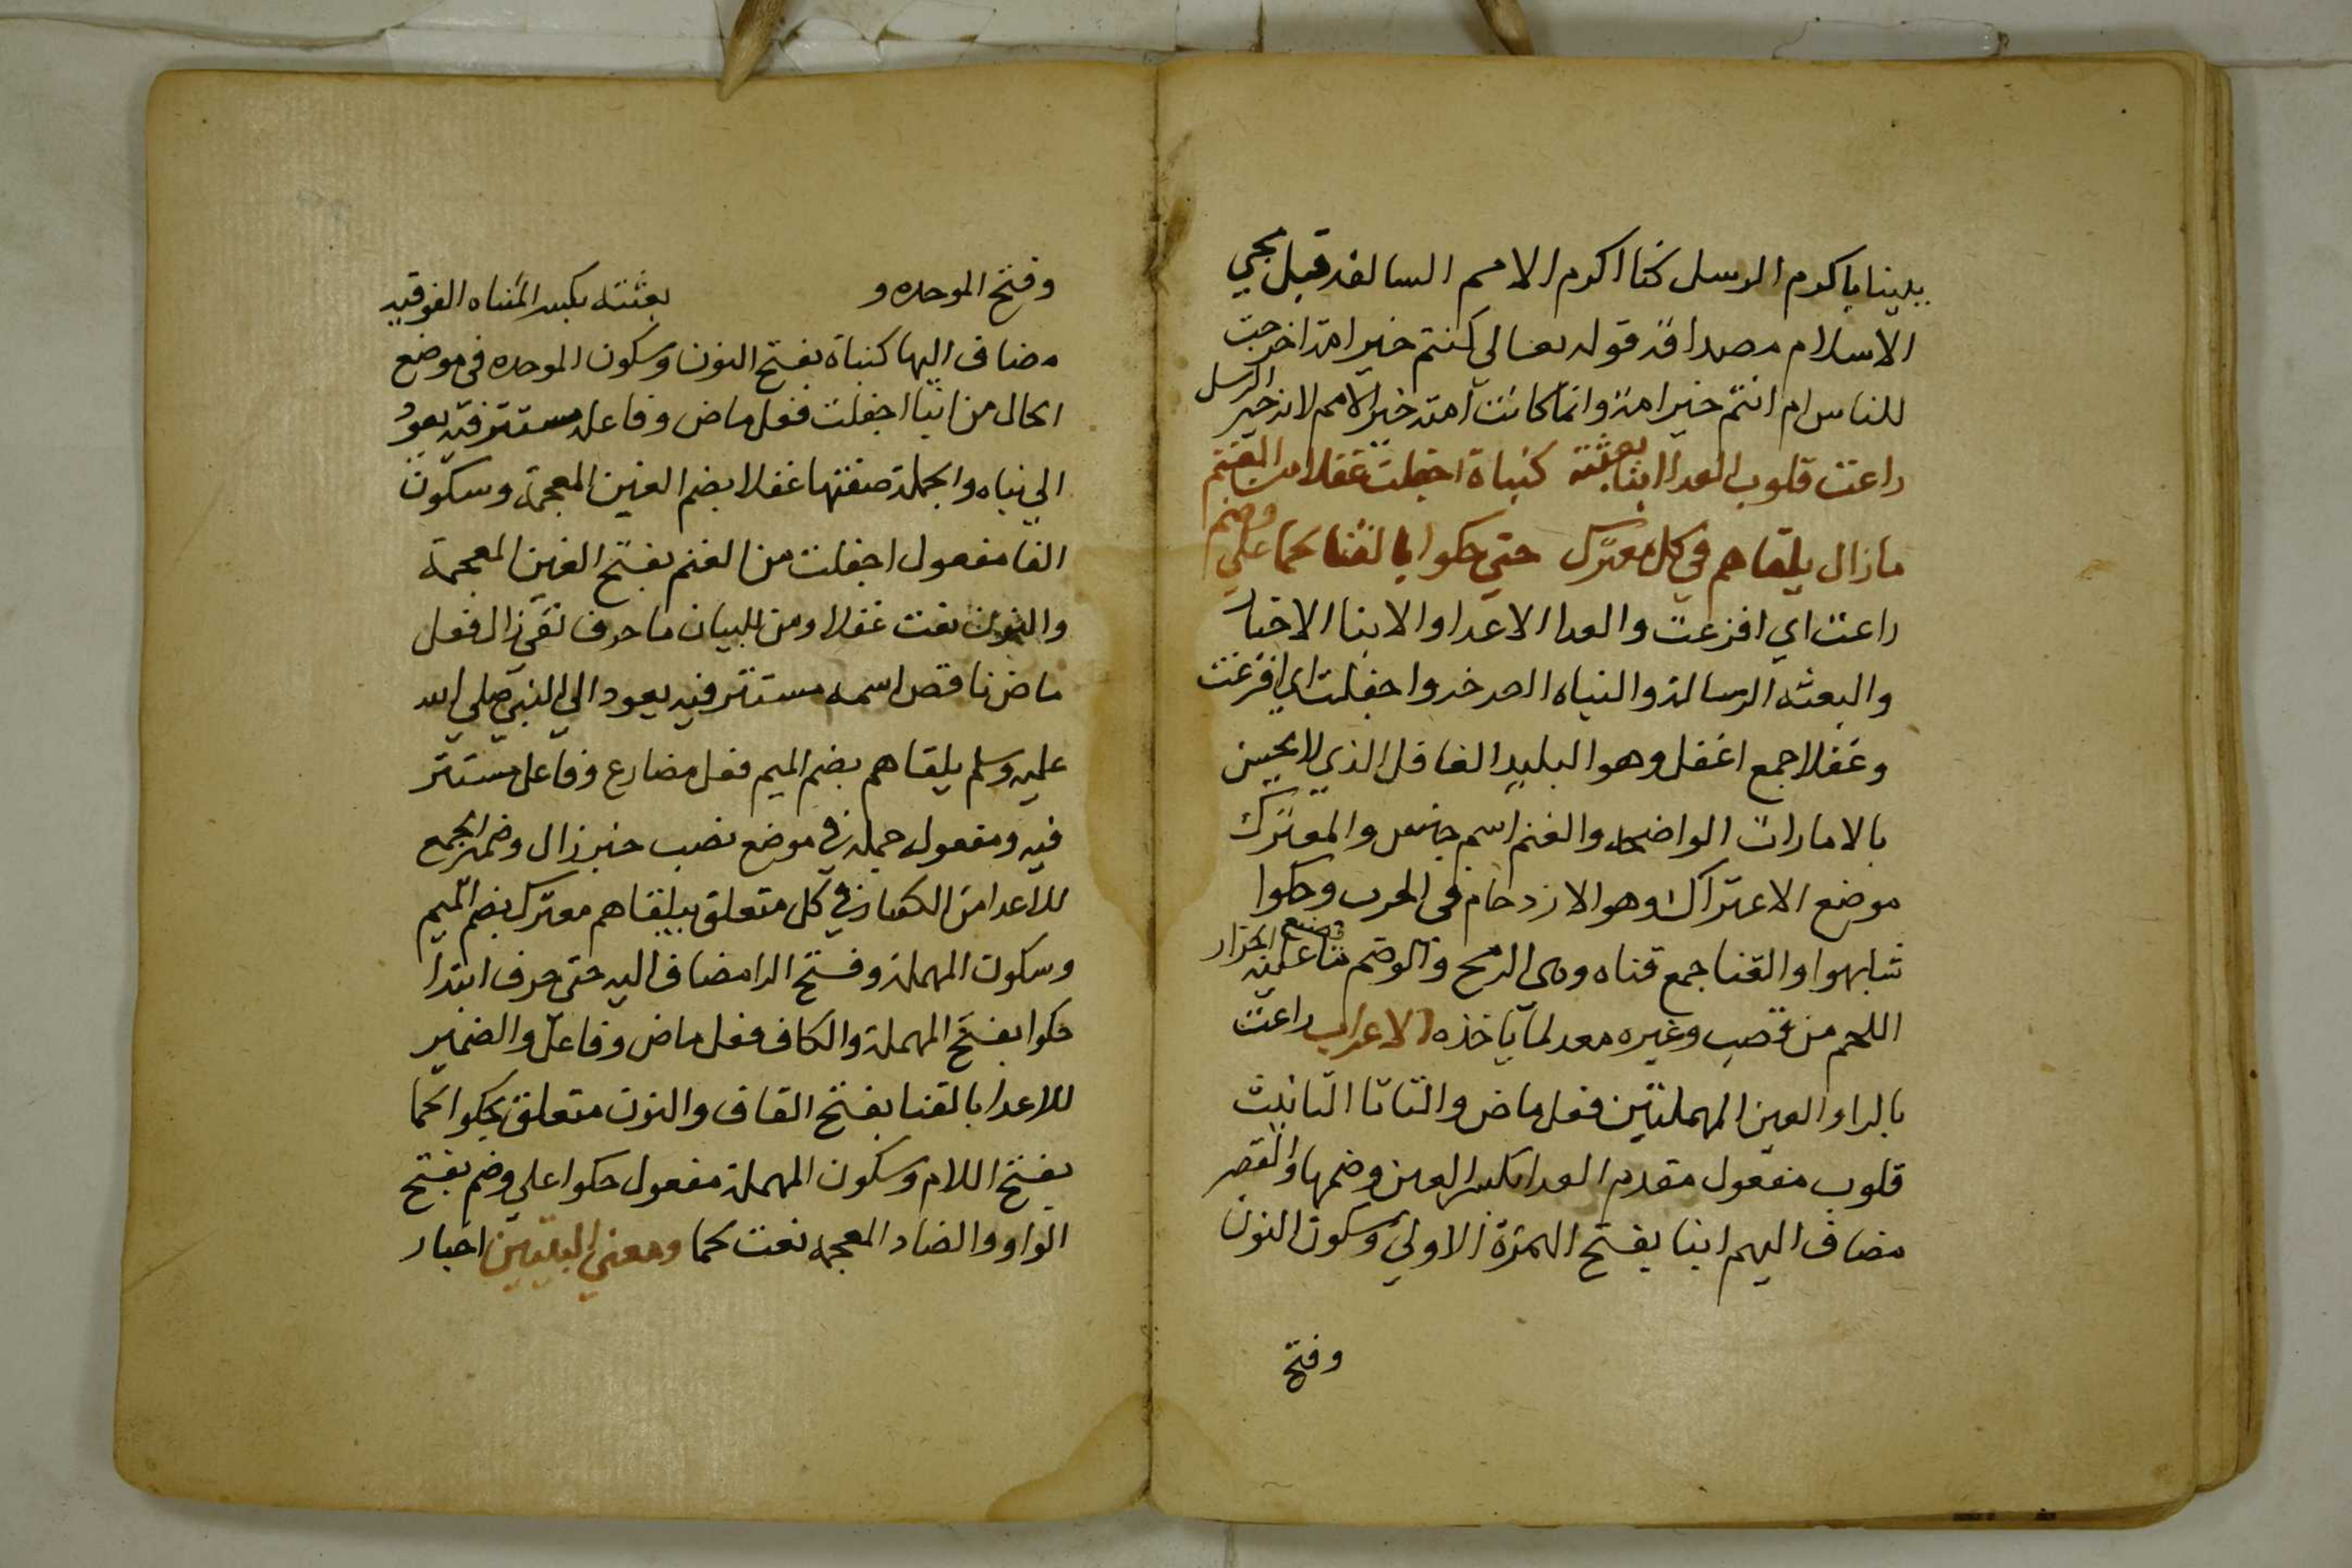 بدينا باكرم الرسل كنا اكرم الامم السالفه قبل مجي
الاسلام مصداقه قوله تعالي كنتم خير امة اخرجت
للناس ام انتم خير امة وانما كانت امته خير الامم لانه خير الرسل
راعت قلوب العدا انبا بعثته كنباة اجفلت غفلا من الغنم
ما زال يلقاهم في كل معترك حتي حكوا بالقنا لحما علي وضم
راعت اي افزعت والعدا الاعدا والانبا الاخبار
والبعثه الرسالة والنباه واجفلت اي افزعت
وغفلا جمع اغفل وهو البليد الغافل الذي لا يحس
بالامارات الواضحه والغنم اسم جنس والمعترك
موضع الاعتراك وهو الازدحام في الحرب وحكوا
شابهوا والقنا جمع قناه وهي الرمح والوضم ما يضع الجزار عليه
اللحم من قصب وغيره معد لما ياخذه الاعراب راعت
بالرا والعين المهملتين فعل ماض والتا تا التانيث
قلوب مفعول مقدم العدا بكسر العين وضمها والقصر
مضاف اليهم انبا بفتح الهمزة الاولي وسكون النون
وفتح
وفتح الموحده و بعثته بكسر المثناه الفوقيه
مضاف اليها كنباة بفتح النون وسكون الموحده في موضع
الحال من انبا اجفلت فعل ماض وفاعله مستتر فيه يعود
الي نباه والجملة صفتها غفلا بضم الغين المعجمة وسكون
الفا مفعول اجفلت من الغنم بفتح الغين المعجمة
والنون نعت غفلا ومن للبيان ما حرف نفي زال فعل
ماض ناقص اسمه مستتر فيه يعود الي النبي صلي الله
عليه وسلم يلقاهم بضم الميم فعل مضارع وفاعل مستتر
فيه ومفعول جملة في موضع نصب خبر زال وضمير الجمع
للاعدا من الكفار في كل متعلق بيلقاهم معترك بضم الميم
وسكون المهملة وفتح الرا مضاف اليه حتي حرف ابتدا
حكوا بفتح المهملة والكاف فعل ماض وفاعل والضمير
للاعدا بالقنا بفتح القاف والنون متعلق بحكوا لحما
بفتح اللام وسكون المهملة مفعول حكوا علي وضم بفتح
الواو والضاد المعجمه نعت لحما ومعني البيتين اخبار